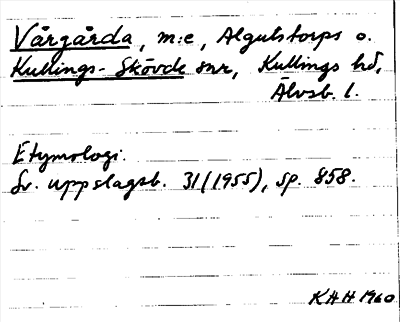 Vårgårda, m:e, Algutstorps o.
Kullings-Skövde snr, Kullings hd,
Älvsb. l.
Etymologi.
Sv. uppslagsb. 31 (1955), sp. 858.
KHH 1960